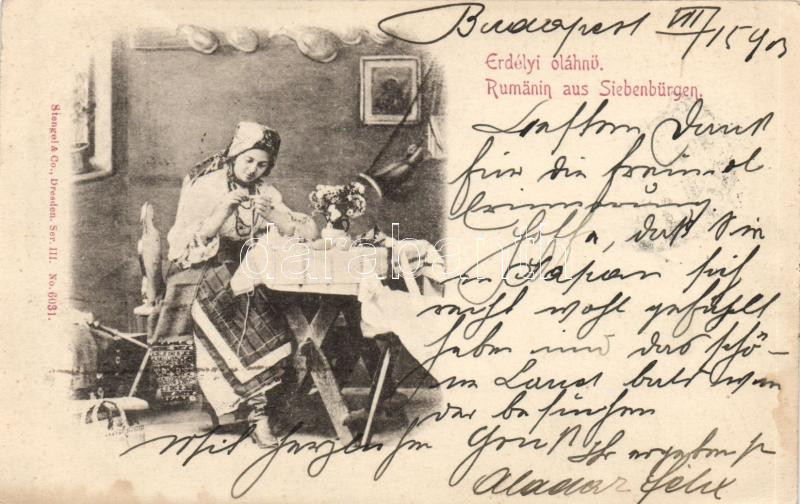 Budapest VII/15 903
Erdélyi oláhnö.
Rumänin aus Siebenbürgen.
Stengel & Co., Dresden. Ser. III. No. 6031.
Besten Dank
für die freundl
Erinnerung
Hoffe, daß Sie
in Japan sich
recht wohl gefühlt
haben und das schö-
ne Land bald wie
der besuchen
Mit herzlichem Gruß Ihr ergebenster
Aladar Felix
darabanth.com